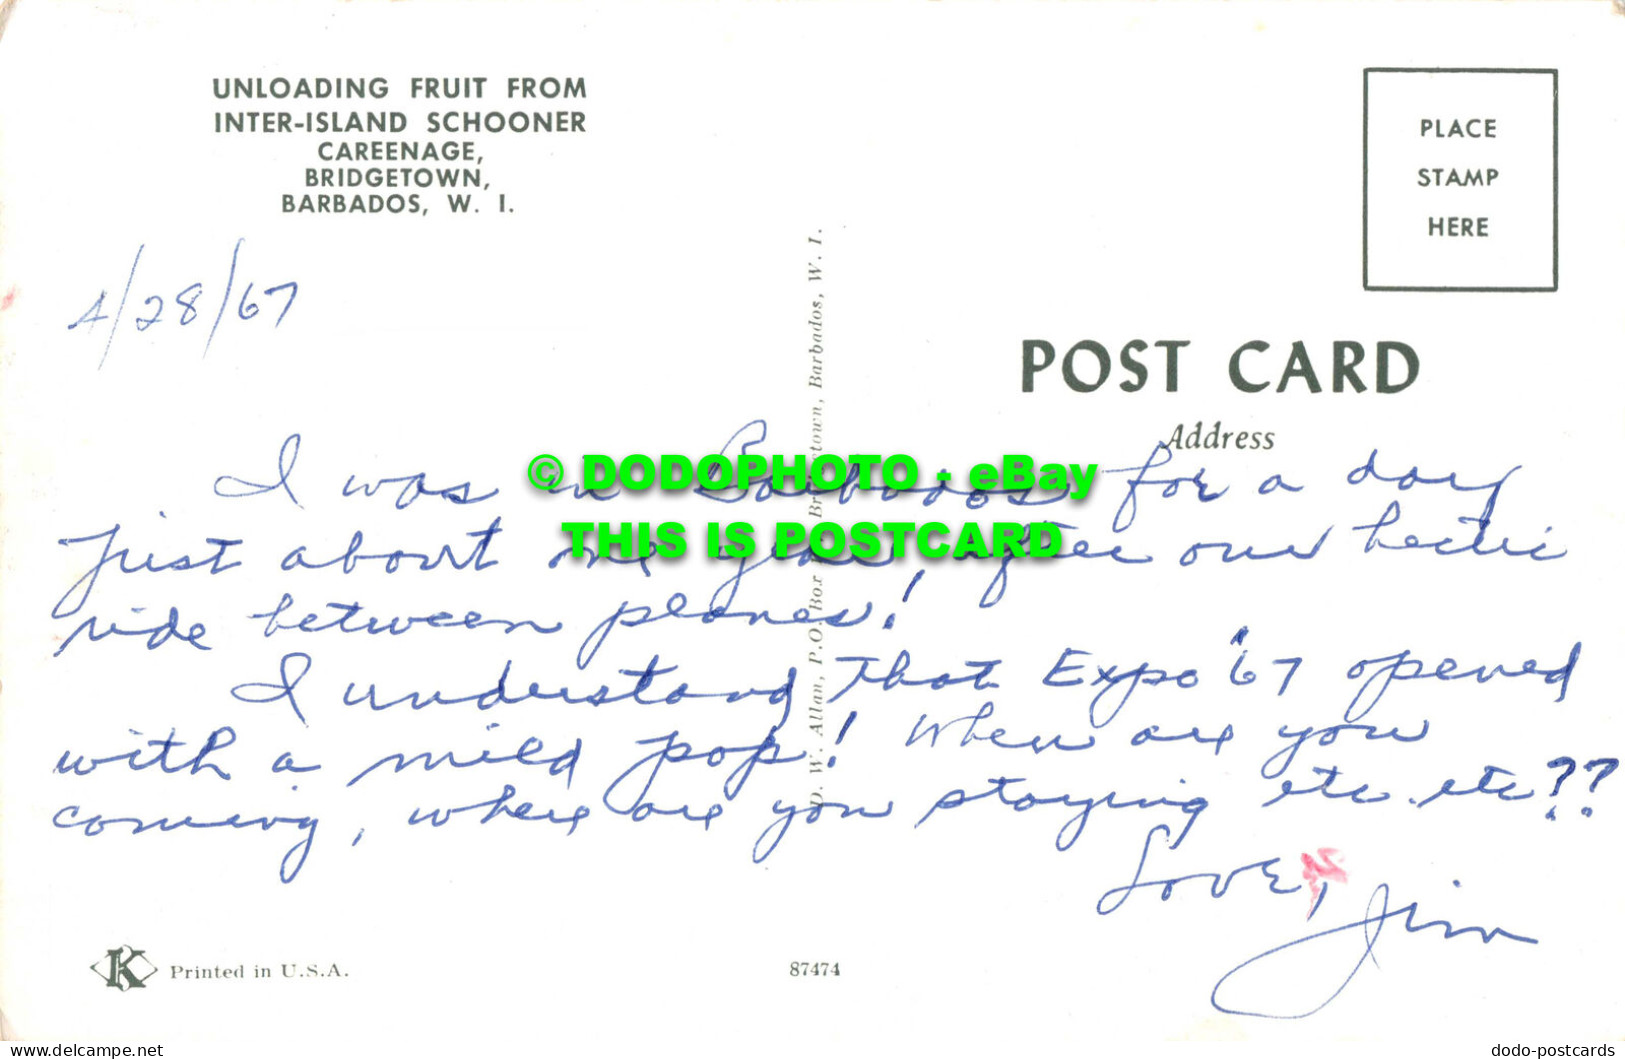 UNLOADING FRUIT FROM
INTER-ISLAND SCHOONER
CAREENAGE,
BRIDGETOWN,
BARBADOS, W. I.
PLACE
STAMP
HERE
4/28/67
POST CARD
Address
I was in Barbados for a day
just about one year, after our hectic
ride between planes!
I understand that Expo '67 opened
with a mild pop! When are you
coming, where are you staying etc. etc??
Love,
Jim
D. W. Allan, P.O. Box Bridgetown, Barbados, W. I.
© DODOPHOTO - eBay
THIS IS POSTCARD
K Printed in U.S.A.
87474
Delcampe.net
dodo-postcards